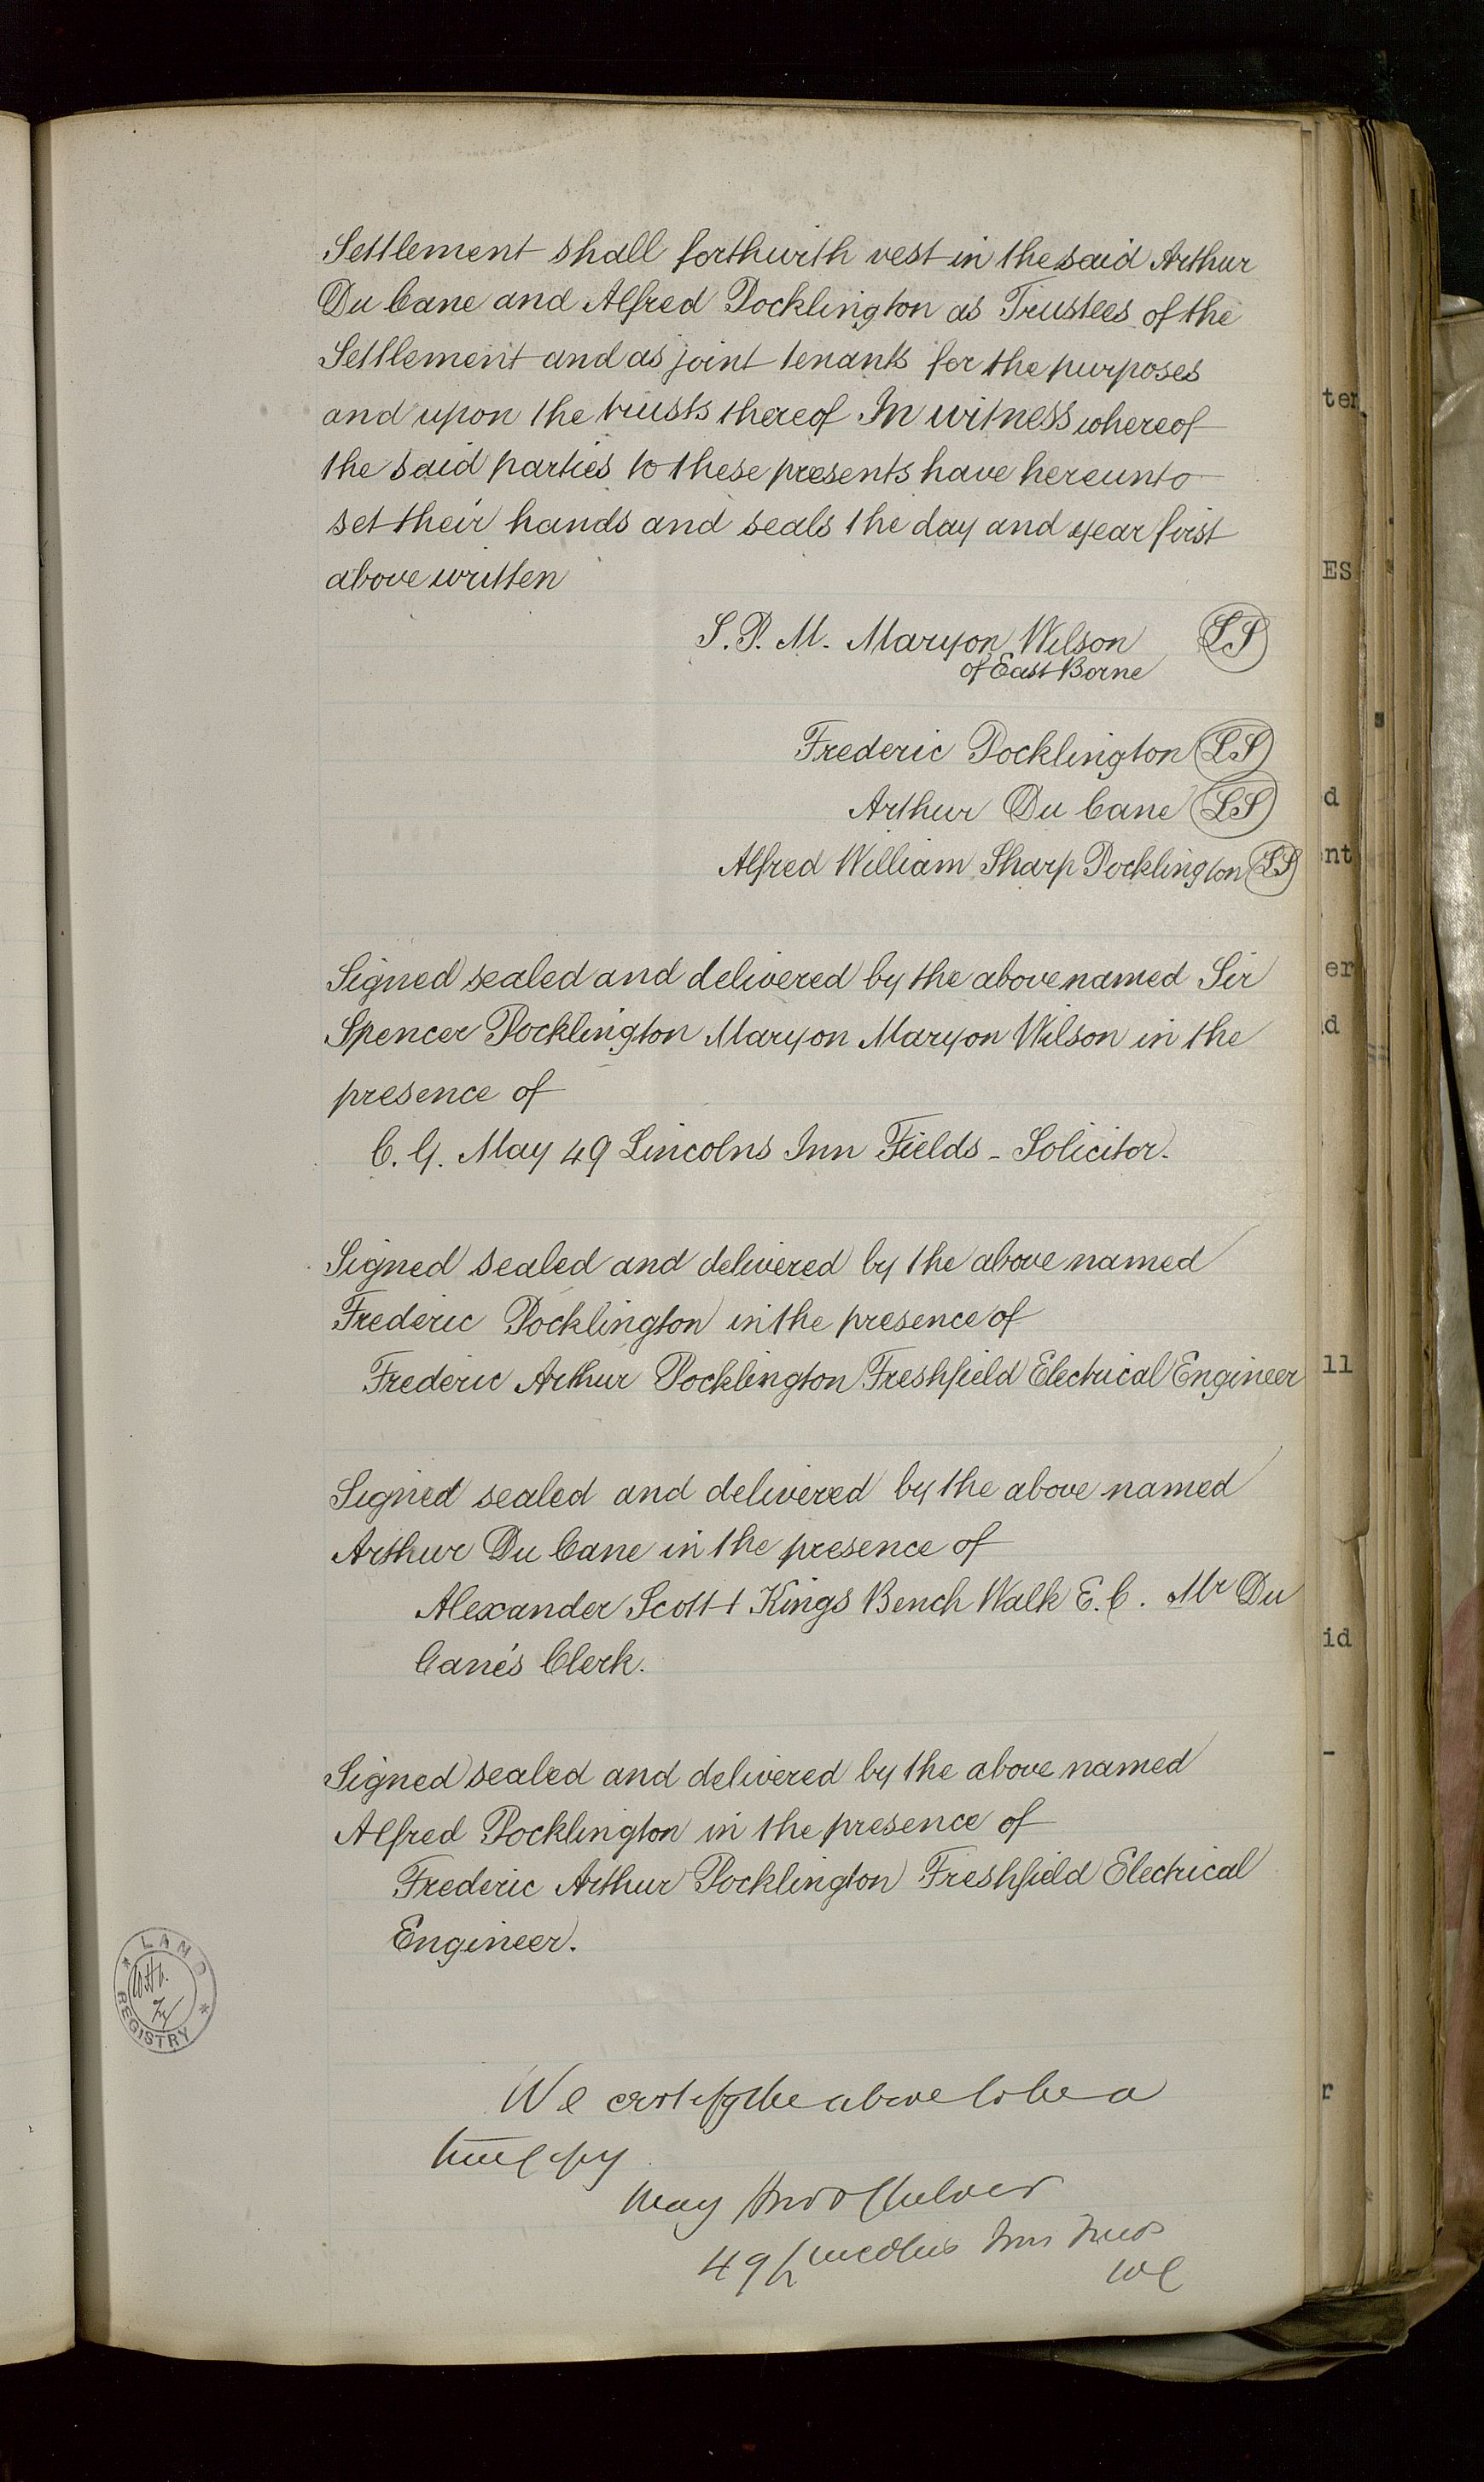 Settlement shall forthwith vest in the said Arthur
Du Cane and Alfred Pocklington as Trustees of the
Settlement and as joint tenants for the purposes
and upon the trusts thereof In witness whereof
the said parties to these presents have hereunto
set their hands and seals the day and year first
above written
S. P. M. Maryon Wilson LS
of East Borne
Frederic Pocklington LS
Arthur Du Cane LS
Alfred William Sharp Pocklington LS
Signed sealed and delivered by the above named Sir
Spencer Pocklington Maryon Maryon Wilson in the
presence of
C. G. May 49 Lincolns Inn Fields - Solicitor.
Signed sealed and delivered by the above named
Frederic Pocklington in the presence of
Frederic Arthur Pocklington Freshfield Electrical Engineer
Signed sealed and delivered by the above named
Arthur Du Cane in the presence of
Alexander Scott 1 Kings Bench Walk E.C. Mr Du
Cane's Clerk.
Signed sealed and delivered by the above named
Alfred Pocklington in the presence of
Frederic Arthur Pocklington Freshfield Electrical
Engineer.
LAND
REGISTRY
We certify the above to be a
true copy
May
49 Lincolns Inn Fields
WC
ter
ES
d
nt
er
d
ll
id
-
r